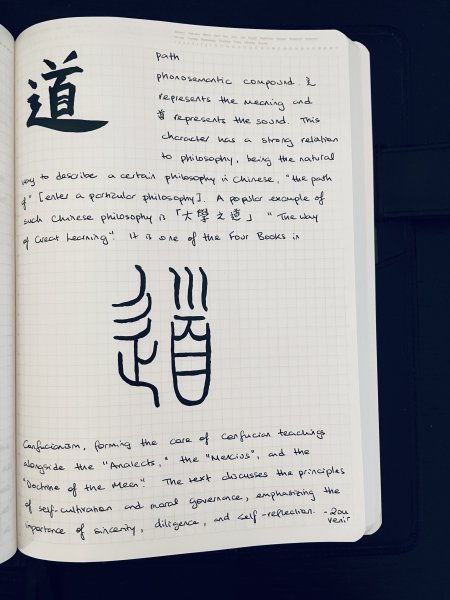 道
path
phonosemantic compound. 辶
represents the meaning and
首 represents the sound. This
character has a strong relation
to philosophy, being the natural
way to describe a certain philosophy in Chinese, "the path
of" [enter a particular philosophy]. A popular example of
such Chinese philosophy is 「大學之道」 "The Way
of Great Learning". It is one of the Four Books in
道
Confucianism, forming the core of Confucian teachings
alongside the "Analects," the "Mencius", and the
"Doctrine of the Mean". The text discusses the principles
of self-cultivation and moral governance, emphasizing the
importance of sincerity, diligence, and self-reflection.